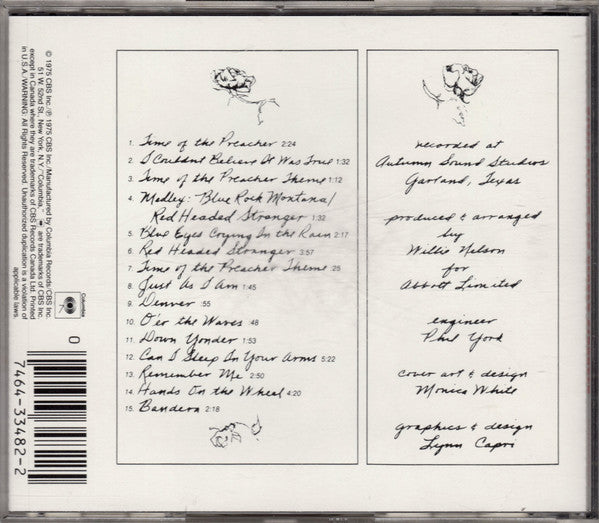 1. Time of the Preacher 2:24
2. I Couldn't Believe It Was True 1:32
3. Time of the Preacher Theme 1:12
4. Medley: Blue Rock Montana/
Red Headed Stranger 1:32
5. Blue Eyes Crying In the Rain 2:17
6. Red Headed Stranger 3:57
7. Time of the Preacher Theme :25
8. Just As I Am 1:45
9. Denver :55
10. O'er the Waves :48
11. Down Yonder 1:53
12. Can I Sleep In Your Arms 5:22
13. Remember Me 2:50
14. Hands On the Wheel 4:20
15. Bandera 2:18
recorded at
Autumn Sound Studios
Garland, Texas
produced & arranged
by
Willie Nelson
for
Abbott Limited
engineer
Phil York
cover art & design
Monica White
graphics & design
Lynn Capri
© 1975 CBS Inc./℗ 1975 CBS Inc./Manufactured by Columbia Records/CBS Inc./
51 W. 52nd St., New York, N.Y./"Columbia," are trademarks of CBS Inc.
except in Canada where they are trademarks of CBS Records Canada Ltd. Printed
in U.S.A./WARNING: All Rights Reserved. Unauthorized duplication is a violation of
applicable laws.
Columbia
0
7464-33482-2